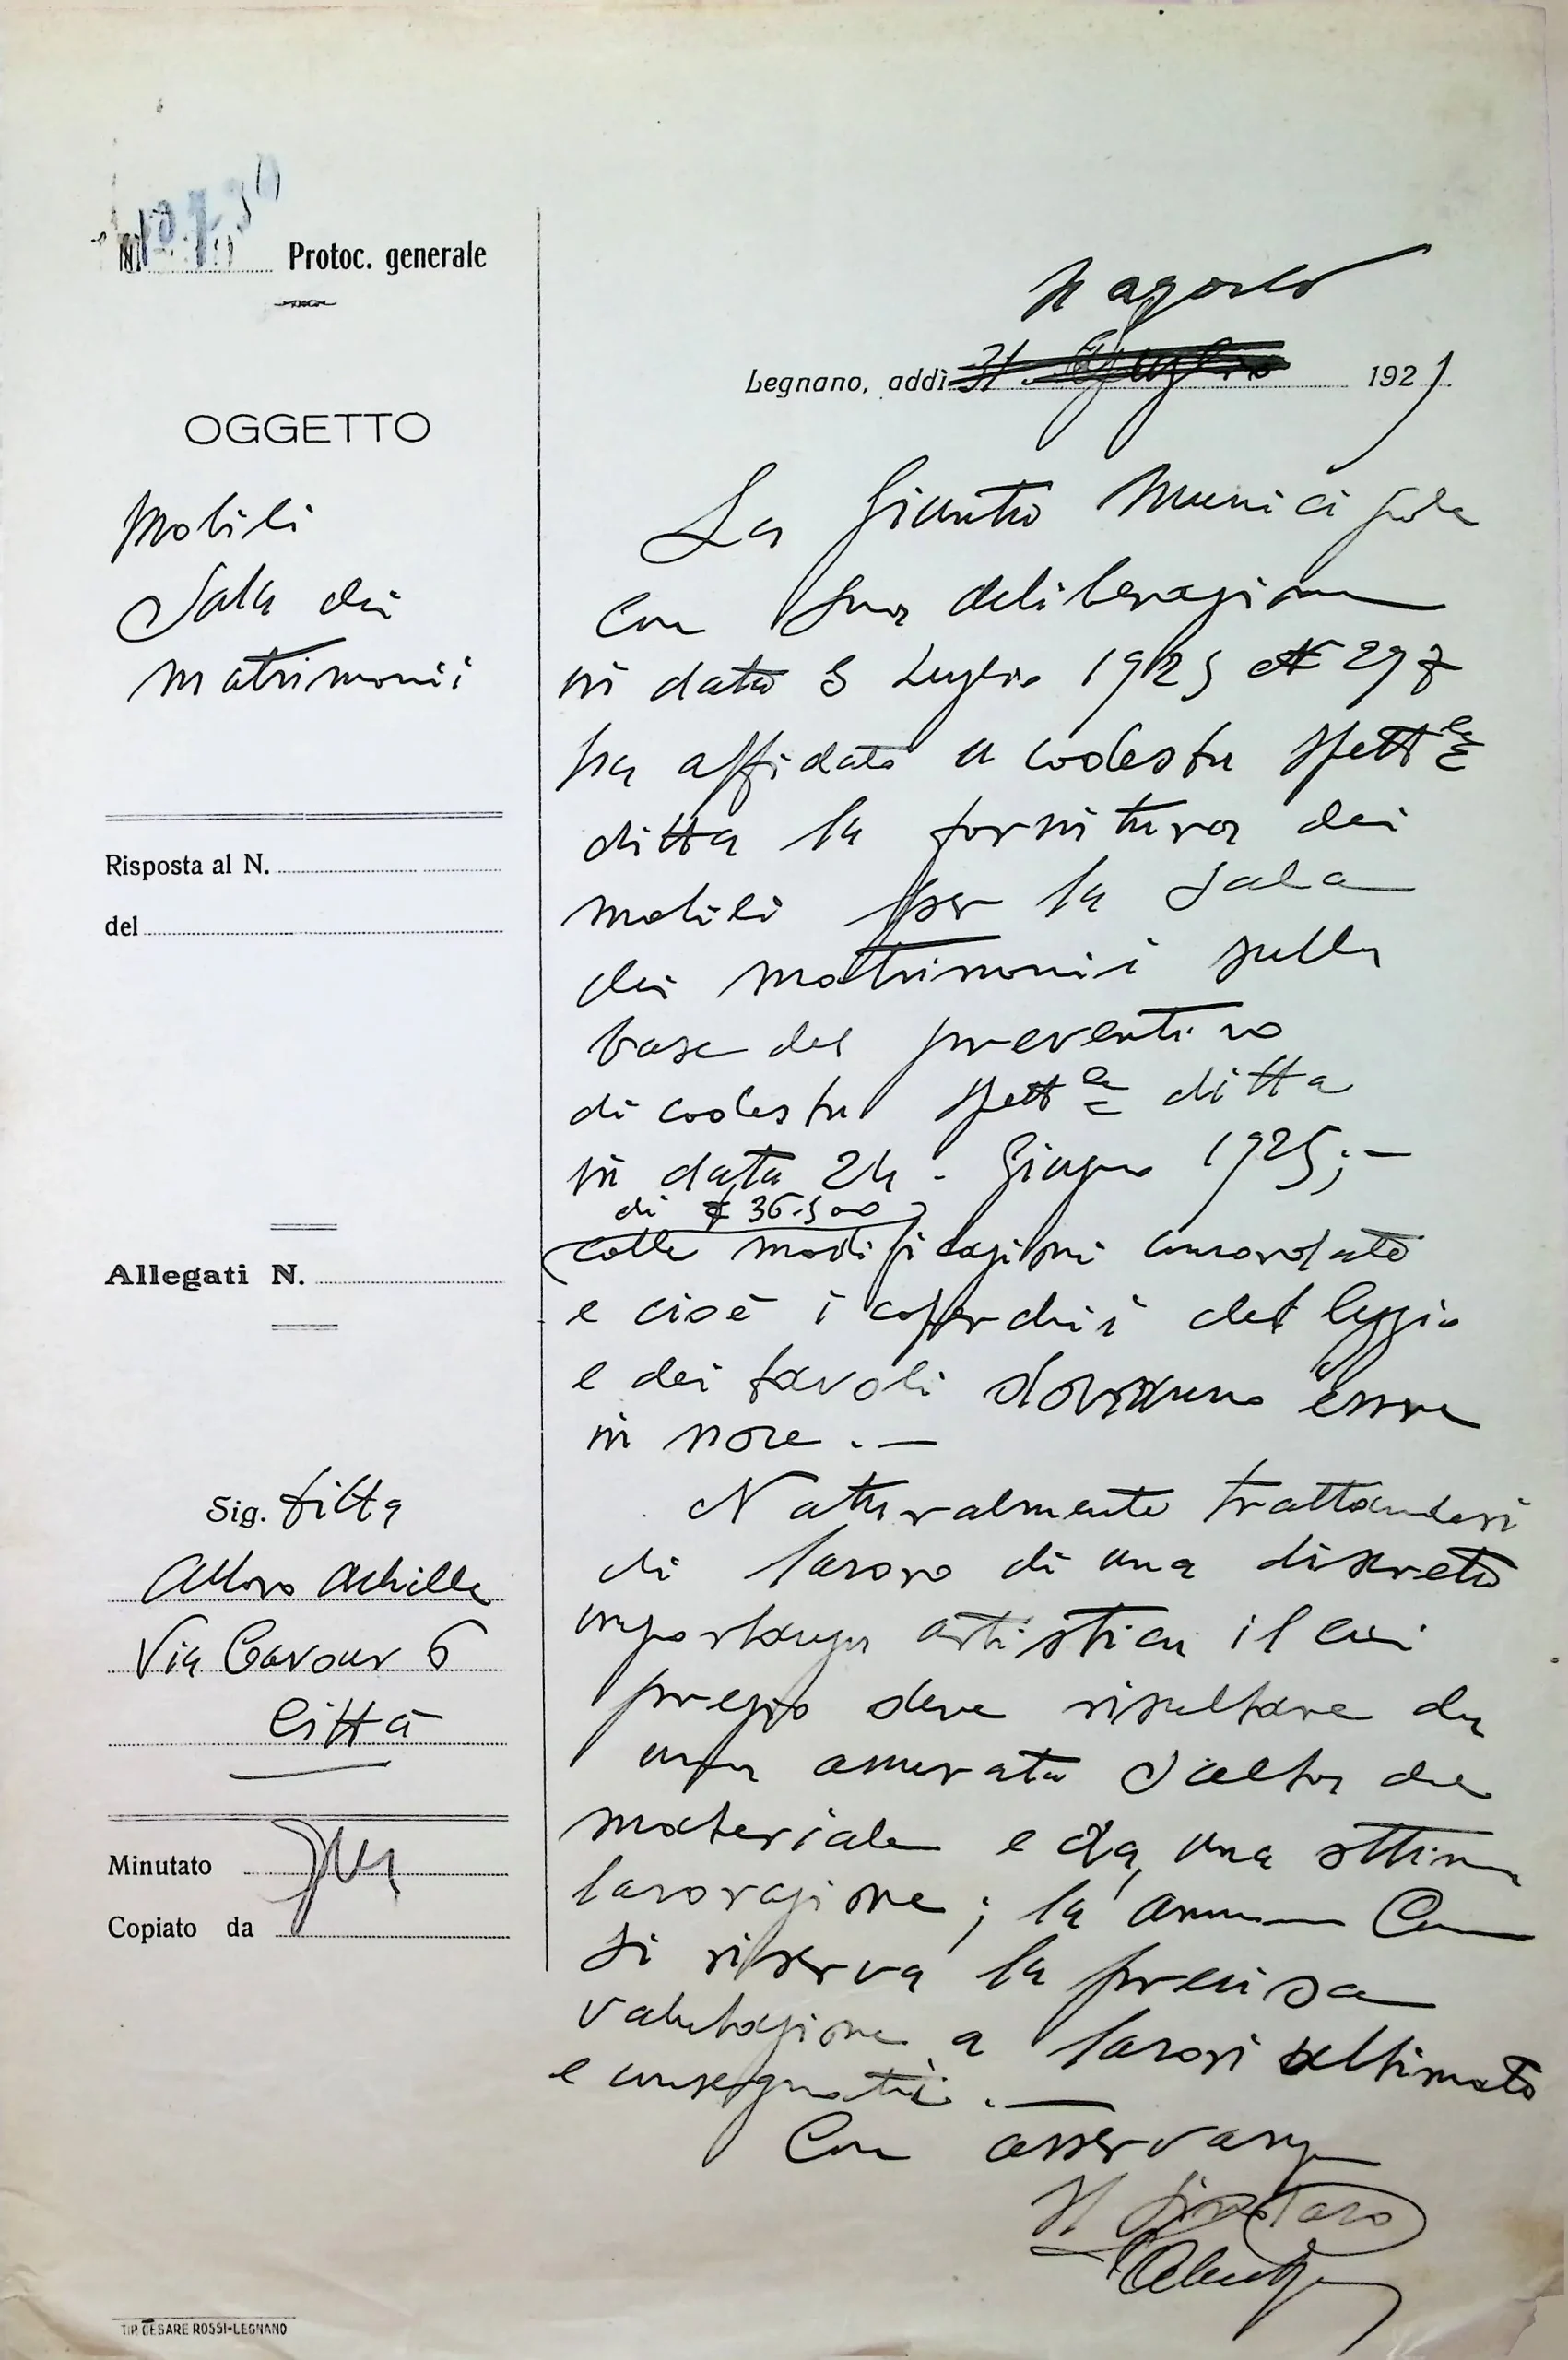 N. Protoc. generale
agosto
Legnano, addì 31. Luglio 1925
OGGETTO
Mobili
Sala dei
matrimonii
La Giunta Municipale
con sua deliberazione
in data 3 Luglio 1925 N 297
ha affidato a codesta Spett.le
ditta la fornitura dei
mobili per la Sala
dei matrimonii sulla
base del preventivo
di codesta Spett.le ditta
in data 24. Giugno 1925;-
di £ 36.500
colle modificazioni concordate
e cioè i coperchii del leggio
e dei tavoli dovranno essere
in noce.-
Naturalmente trattandosi
di lavoro di una discreta
importanza artistica il cui
pregio deve risultare da
una accurata scelta del
materiale e da una ottima
lavorazione; la Amm Com
si riserva la precisa
valutazione a lavori ultimati
e consegnati.-
Con osservanza
Il Sindaco
Risposta al N.
del
Allegati N.
Sig. Ditta
Achille
Via Cavour 6
Città
Minutato
Copiato da
TIP. CESARE ROSSI-LEGNANO